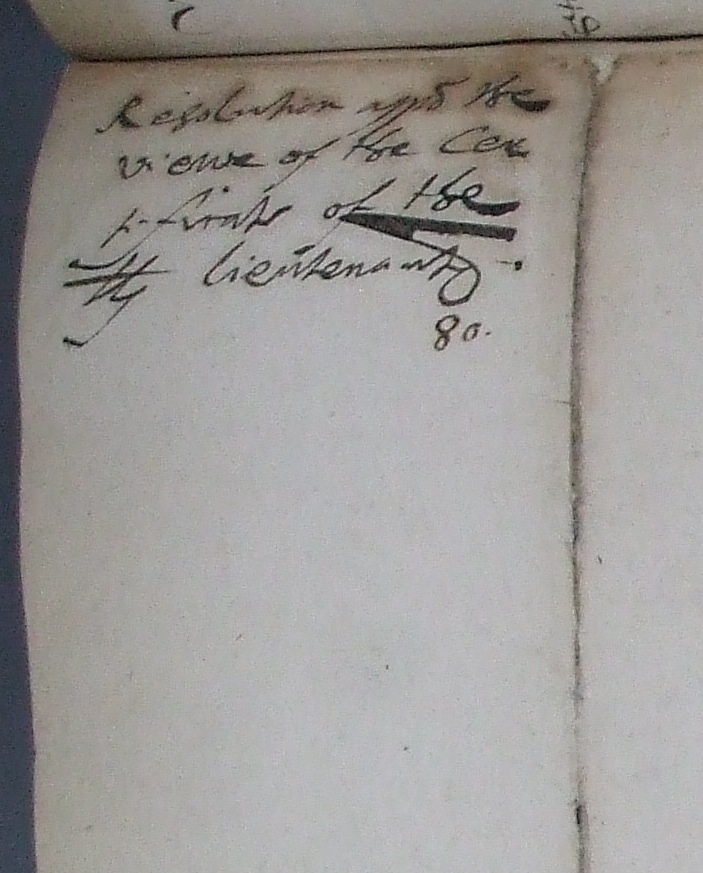 Resolution uppō the
viewe of the Cer
tificats of the
lieutenantę.
80.